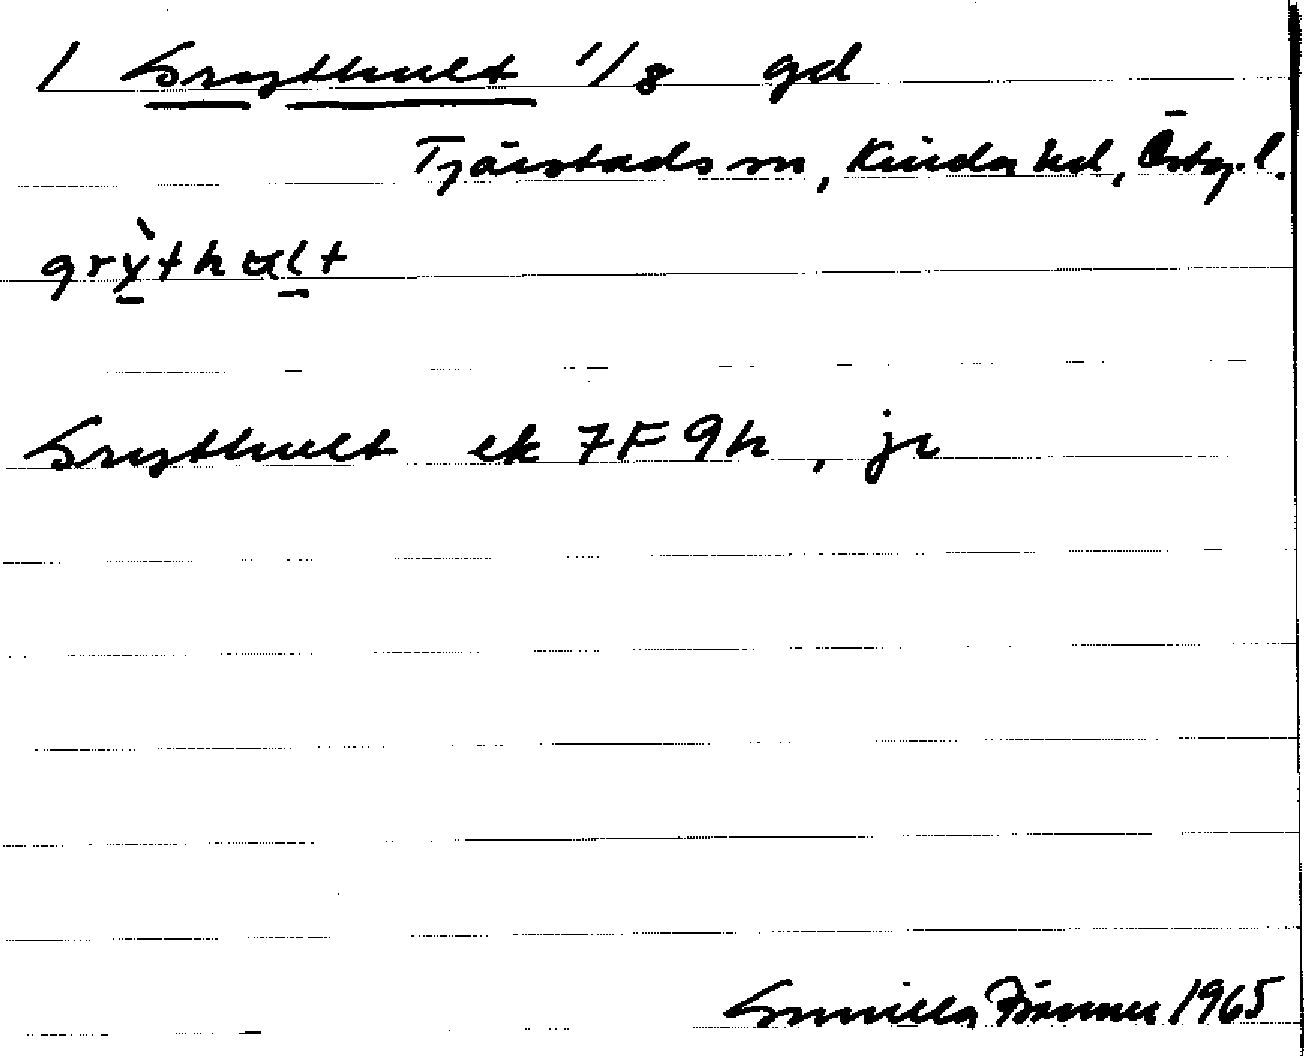 1 Grythult 1/8 gd
Tjärstads sn, Kinda hd, Östg. l.
grỳthult
Grythult ek 7F9h, jr
Gunilla 1965